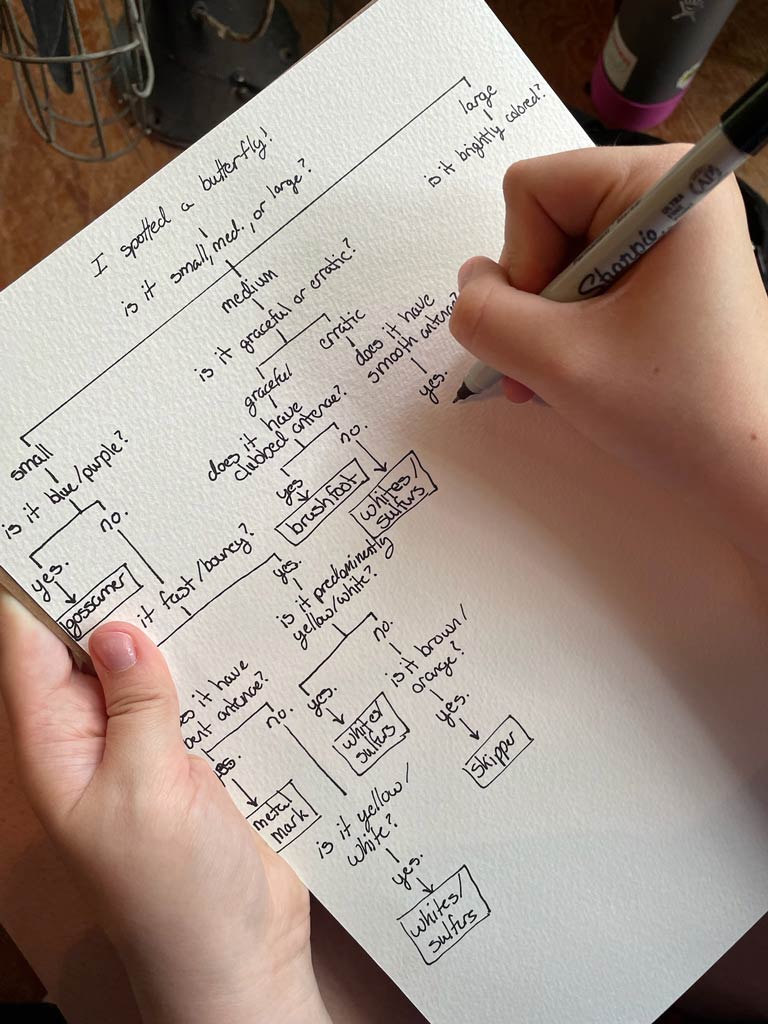 I spotted a butterfly!
is it small, med., or large?
large
is it brightly colored?
medium
is it graceful or erratic?
graceful
erratic
does it have
clubbed antenae?
does it have
smooth antenae?
yes
no.
yes.
brushfoot
whites/
sulfurs
small
is it blue/purple?
yes.
no.
gossamer
it fast/bouncy?
yes.
is it predominently
yellow/white?
yes.
no.
white/
sulfurs
is it brown/
orange?
yes.
skipper
it have
antenae?
no.
metal
mark
is it yellow/
white?
yes.
whites/
sulfurs
Sharpie
ULTRA
FINE